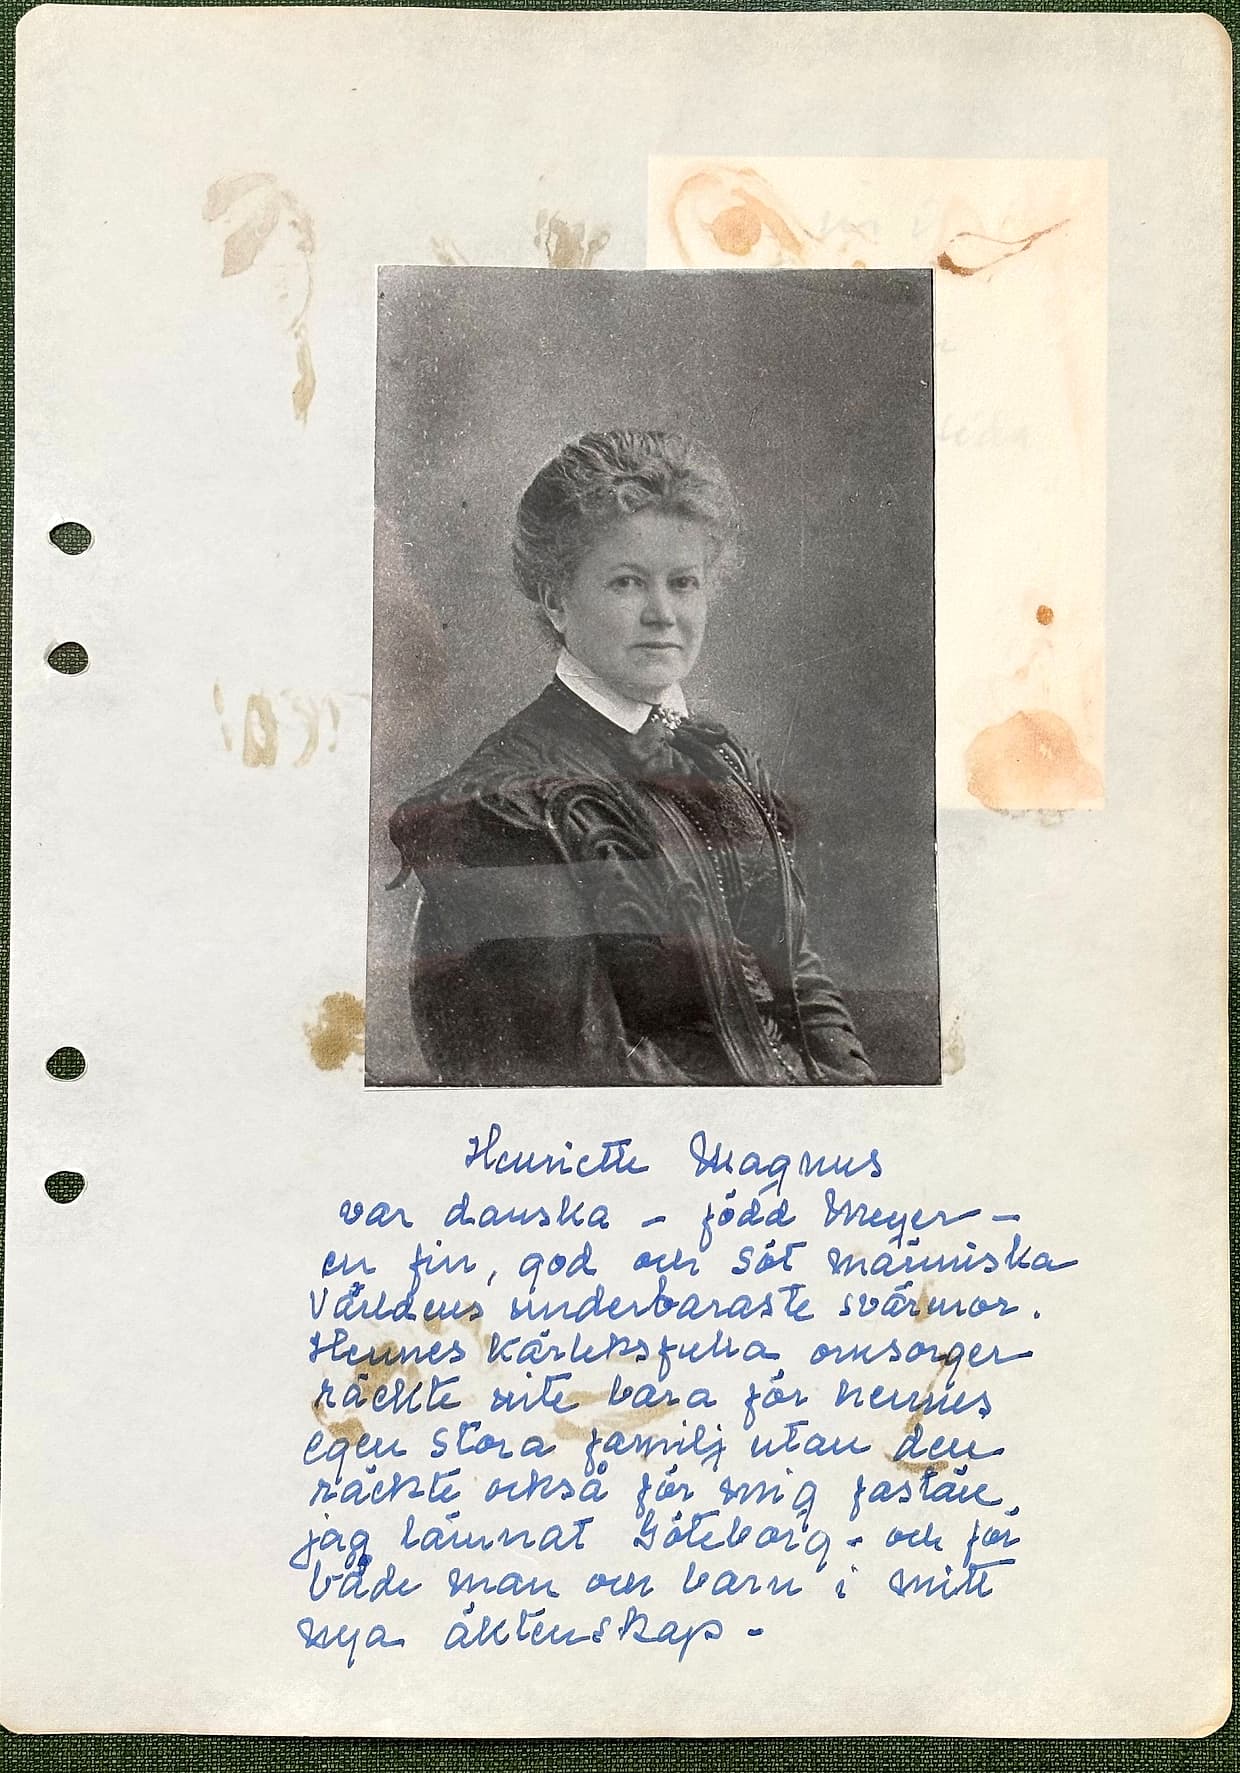 Henriette Magnus
var danska - född Meyer -
en fin, god och söt människa
Världens underbaraste svärmor.
Hennes kärleksfulla omsorger
räckte inte bara för hennes
egen stora familj utan den
räckte också för mig fastän
jag lämnat Göteborg - och för
både man och barn i mitt
nya äktenskap -